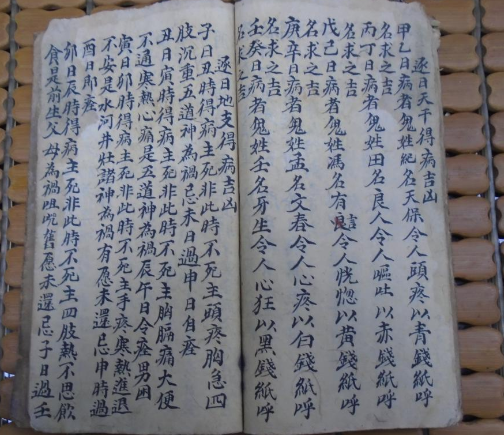 逐日天干得病吉凶
甲乙日病者鬼姓紀名天保令人頭疼以青錢紙呼
名求之吉
丙丁日病者鬼姓田名良人令人嘔吐以赤錢紙呼
名求之吉
戊己日病者鬼姓馮名有言令人恍惚以黄錢紙呼
名求之吉
庚辛日病者鬼姓孟名文春令人心疼以白錢紙呼
名求之吉
壬癸日病者鬼姓壬名牙坐令人心狂以黑錢紙呼
名求之吉
逐地支得病吉凶
子日丑時得病主死非此時不死主頭疼胸急四
肢沉重五道神為禍忌未日過申日自痊
丑日寅時得病主死非此時不死主胸膈痛大便
不通寒熱心痛是五道神為禍辰午日令痊男困
寅日卯時得病主死非此時不死主手疼寒熱進退
不安是水河井灶諸神為禍有愿未還忌申時過
酉日即痊
卯日辰時得病主死非此時不死主四肢熱不思飲
食是前生父母為禍咀呪舊愿未還忌子日過壬